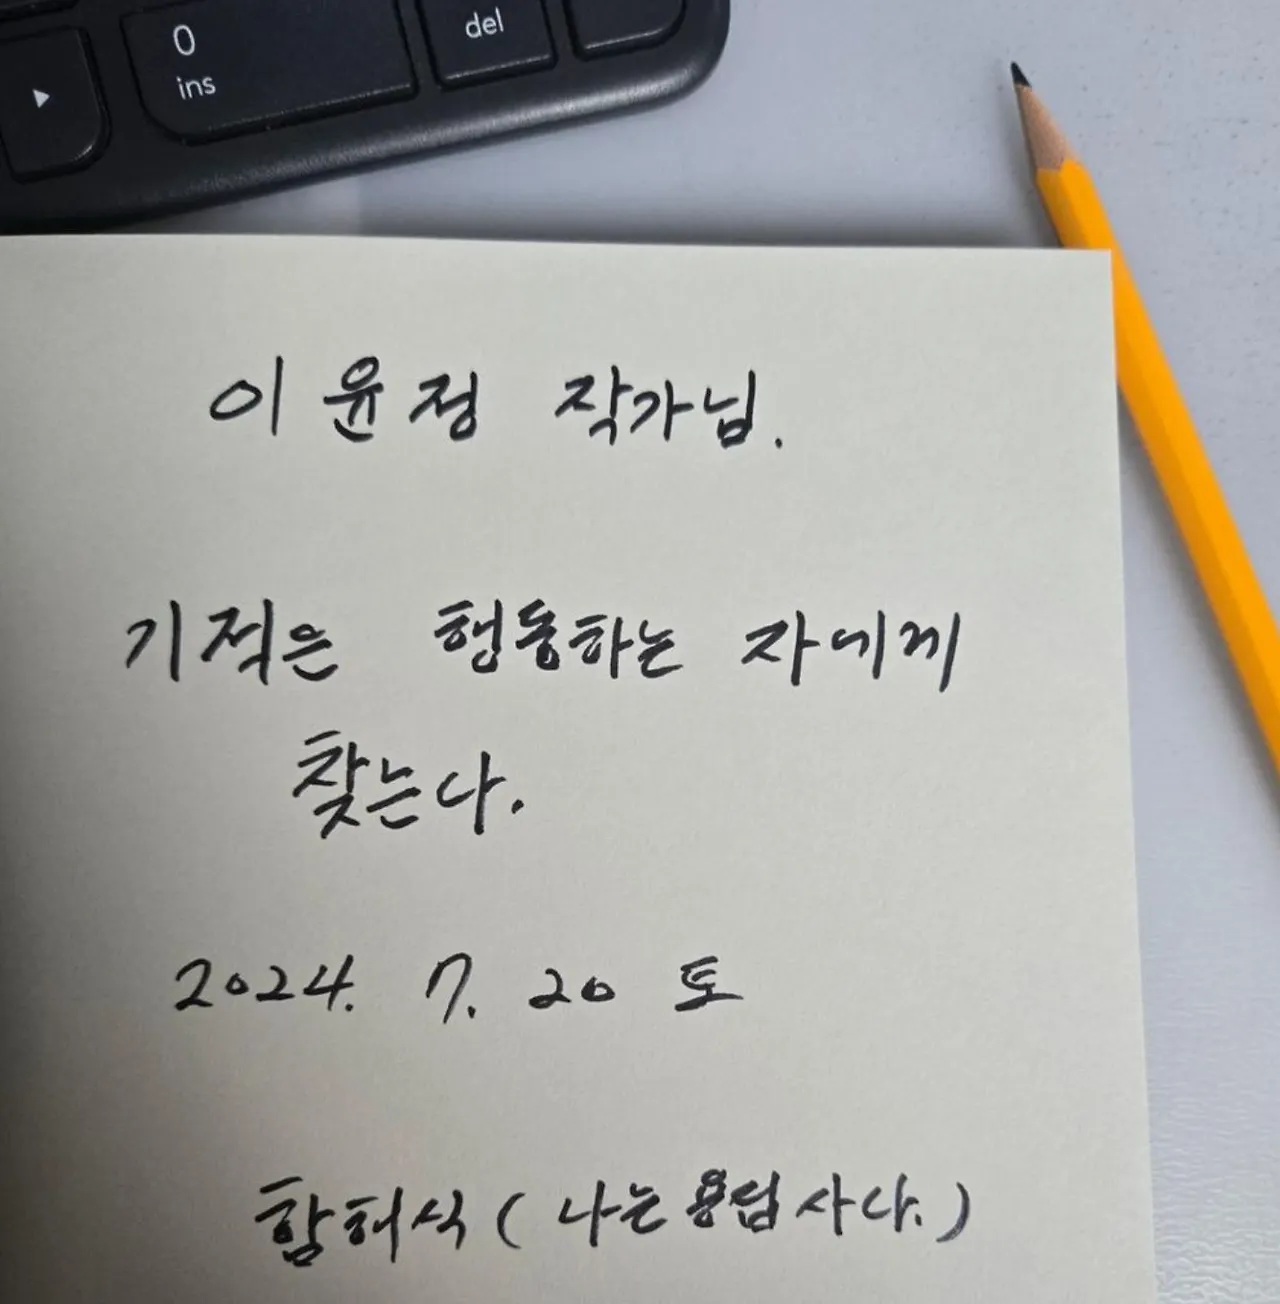 0
del
ins
이윤정 작가님.
기적은 행동하는 자에게
찾는다.
2024. 7. 20 토
(나는